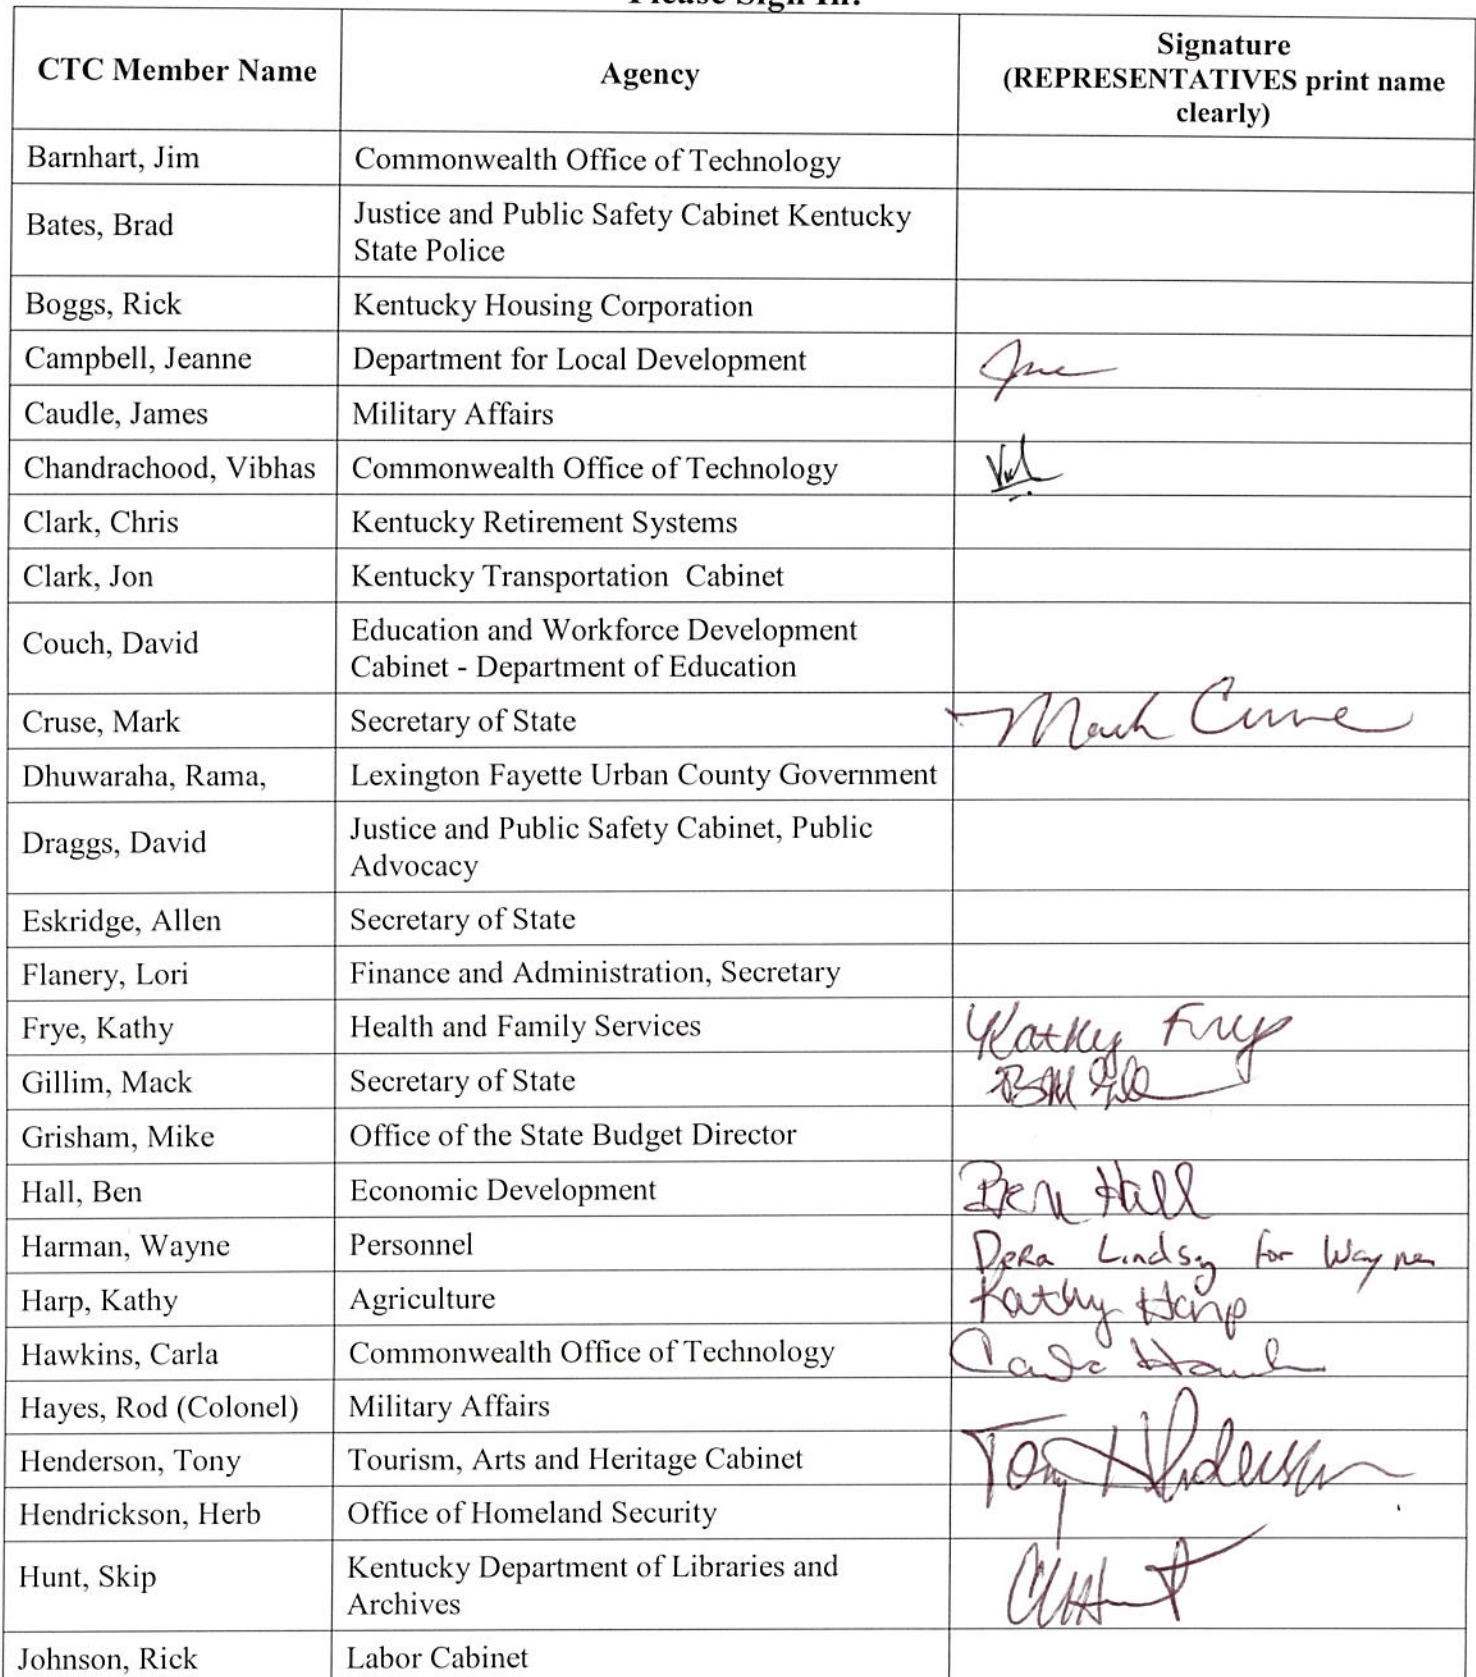 Please Sign In:
CTC Member Name Agency Signature
(REPRESENTATIVES print name
clearly)
Barnhart, Jim Commonwealth Office of Technology
Bates, Brad Justice and Public Safety Cabinet Kentucky
State Police
Boggs, Rick Kentucky Housing Corporation
Campbell, Jeanne Department for Local Development
Caudle, James Military Affairs
Chandrachood, Vibhas Commonwealth Office of Technology
Clark, Chris Kentucky Retirement Systems
Clark, Jon Kentucky Transportation Cabinet
Couch, David Education and Workforce Development
Cabinet - Department of Education
Cruse, Mark Secretary of State Mark Cruse
Dhuwaraha, Rama, Lexington Fayette Urban County Government
Draggs, David Justice and Public Safety Cabinet, Public
Advocacy
Eskridge, Allen Secretary of State
Flanery, Lori Finance and Administration, Secretary
Frye, Kathy Health and Family Services Kathy Frye
Gillim, Mack Secretary of State
Grisham, Mike Office of the State Budget Director
Hall, Ben Economic Development Ben Hall
Harman, Wayne Personnel Lindsy for Wayne
Harp, Kathy Agriculture Kathy Harp
Hawkins, Carla Commonwealth Office of Technology Carla
Hayes, Rod (Colonel) Military Affairs
Henderson, Tony Tourism, Arts and Heritage Cabinet Tony Henderson
Hendrickson, Herb Office of Homeland Security
Hunt, Skip Kentucky Department of Libraries and
Archives
Johnson, Rick Labor Cabinet